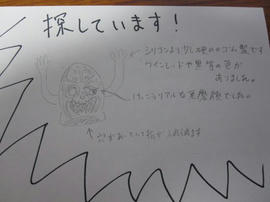 探しています！
シリコンより少し硬めのゴム製です
ワインレッドや黒等の色が
ありました。
けっこうリアルな悪魔顔でした。
↑穴があいていて指が入れれます